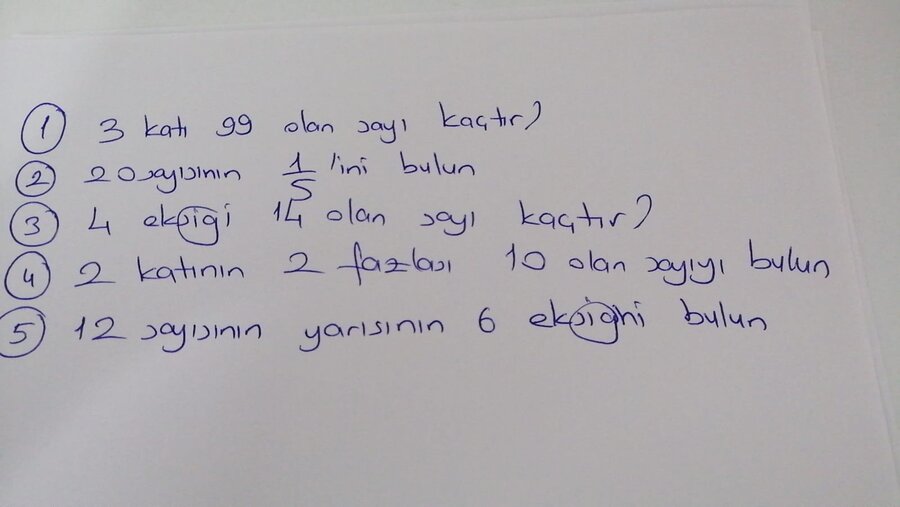 1 3 katı 99 olan sayı kaçtır?
2 20 sayısının 1/5 'ini bulun
3 4 eksiği 14 olan sayı kaçtır?
4 2 katının 2 fazlası 10 olan sayıyı bulun
5 12 sayısının yarısının 6 eksiğini bulun